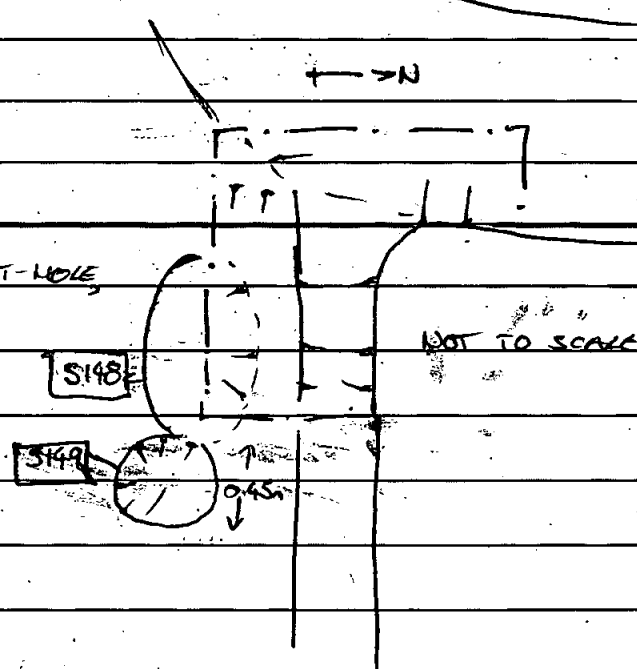 N
T-HOLE,
NOT TO SCALE
5148
5149
0.45m